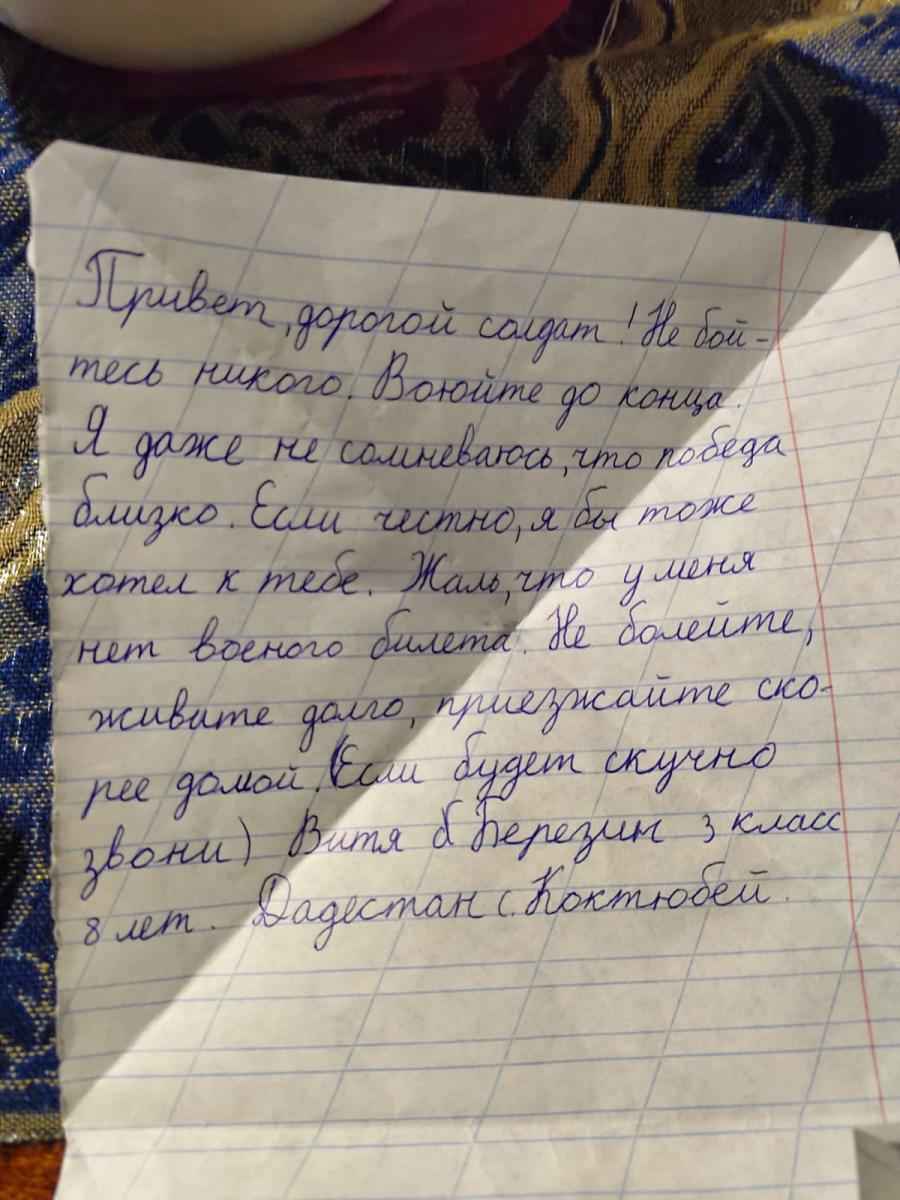 Привет, дорогой солдат! Не бой-
тесь никого. Воюйте до конца.
Я даже не сомневаюсь, что победа
близко. Если честно, я бы тоже
хотел к тебе. Жаль, что у меня
нет военого билета. Не болейте,
живите долго, приезжайте ско-
рее домой. (Если будет скучно
звони) Витя Березин 3 класс
8 лет. Дадестан с. Коктюбей.